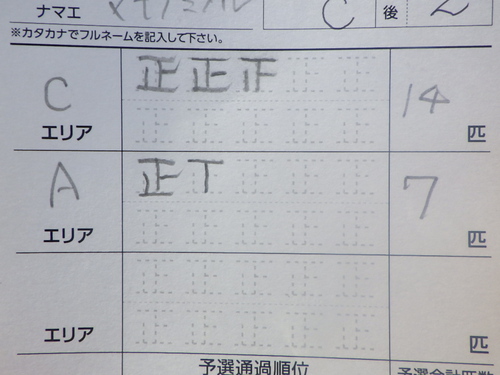 ナマエ C 後 2
※カタカナでフルネームを記入して下さい。
C エリア 正正正 14 匹
A エリア 正丅 7 匹
エリア 匹
予選通過順位 予選合計匹数